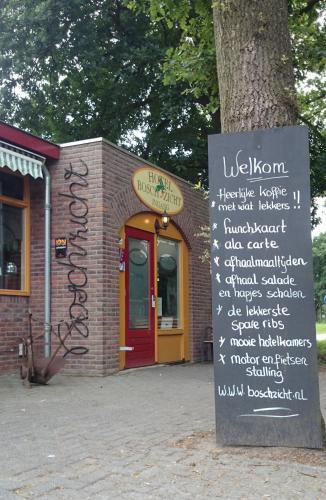 HOTEL
BOSCHZICHT
Boschzicht
Welkom
Heerlijke koffie
met wat lekkers !!
* Lunchkaart
* ala carte
* afhaalmaaltijden
* afhaal salade
en hapjes schalen
* de lekkerste
Spare ribs
* mooie hotelkamers
x motor en fietsen
stalling
W.W.W. boschzicht.nl